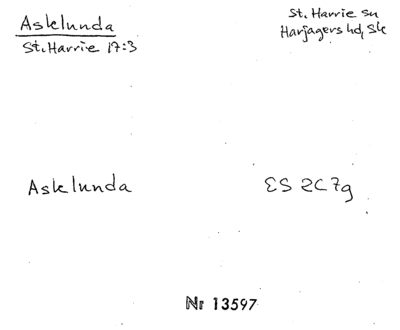 Asklunda
St. Harrie 17:3
St. Harrie sn
Harjagers hd, Sk
Asklunda
ES 2C 7g
Nr 13597